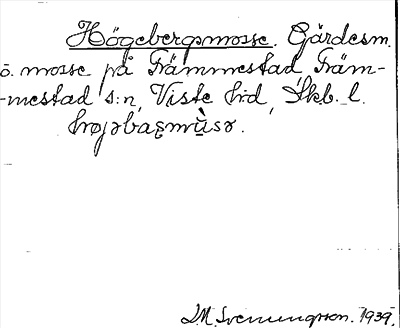 Högebergsmosse. Gärdesm.
o. mosse på Främmestad, Främ-
-mestad s:n, Viste hd, Skb. l.
D.M. Svenungsson. 1939.